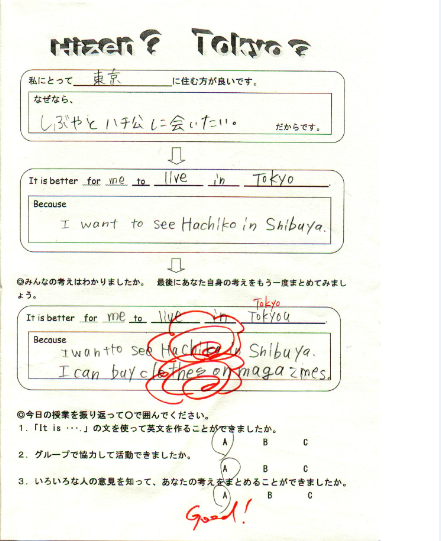 Hizen? Tokyo?
私にとって 東京 に住む方が良いです。
なぜなら、
しぶやと ハチ公 に会いたい。 だからです。
It is better for me to live in Tokyo.
Because
I want to see Hachiko in Shibuya.
◎みんなの考えはわかりましたか。 最後にあなた自身の考えをもう一度まとめてみまし
ょう。
Tokyo
It is better for me to live in Tokyou
Because
I want to see Hachiko in Shibuya.
I can buy clothes on magazines.
◎今日の授業を振り返って○で囲んでください。
1．「It is ・・・.」の文を使って英文を作ることができましたか。
A B C
2．グループで協力して活動できましたか。
A B C
3．いろいろな人の意見を知って、あなたの考えをまとめることができましたか。
A B C
Good!